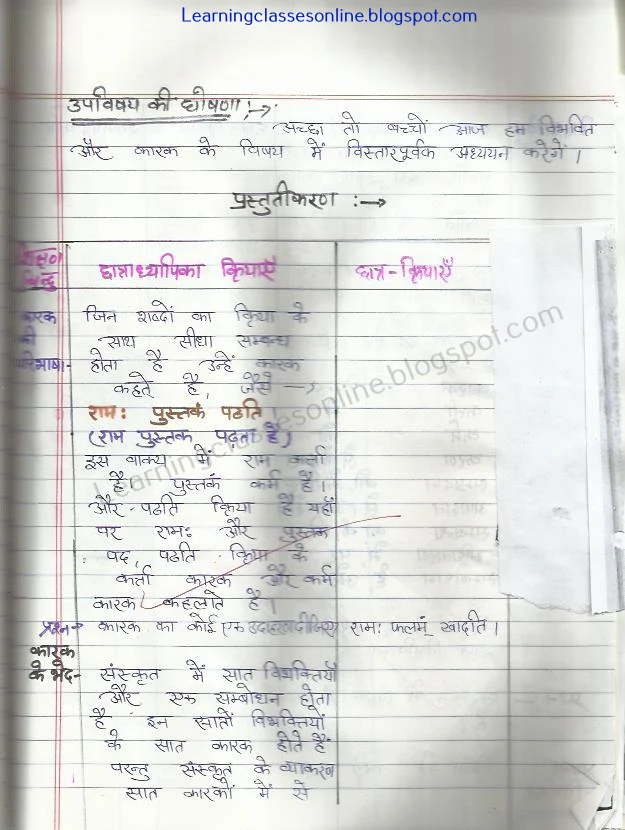 Learningclassesonline.blogspot.com
उपविषय की घोषणा :->
अच्छा तो बच्चों आज हम विभक्ति
और कारक के विषय में विस्तारपूर्वक अध्ययन करेगें ।
प्रस्तुतीकरण :->
शिक्षण बिन्दु छात्राध्यापिका क्रियाएँ छात्र-क्रियाएँ
कारक जिन शब्दों का क्रिया के
की साथ सीधा सम्बन्ध
परिभाषा- होता है उन्हें कारक
कहते है, जैसे ->
रामः पुस्तकं पठति ।
(राम पुस्तक पढ़ता है)
इस वाक्य में राम कर्त्ता
है पुस्तकं कर्म है ।
और पठति क्रिया है यहाँ
पर रामः और पुस्तक
पद, पठति क्रिया के
कर्त्ता कारक और कर्म
कारक कहलाते है ।
प्रश्न- कारक का कोई एक उदाहरण दीजिए रामः फलमं खादति ।
कारक
के भेद- संस्कृत में सात विभक्तियाँ
और एक सम्बोधन होता
है इन सातों विभक्तियों
के सात कारक होते हैं
परन्तु संस्कृत के व्याकरण
सात कारकों में से
Learningclassesonline.blogspot.com